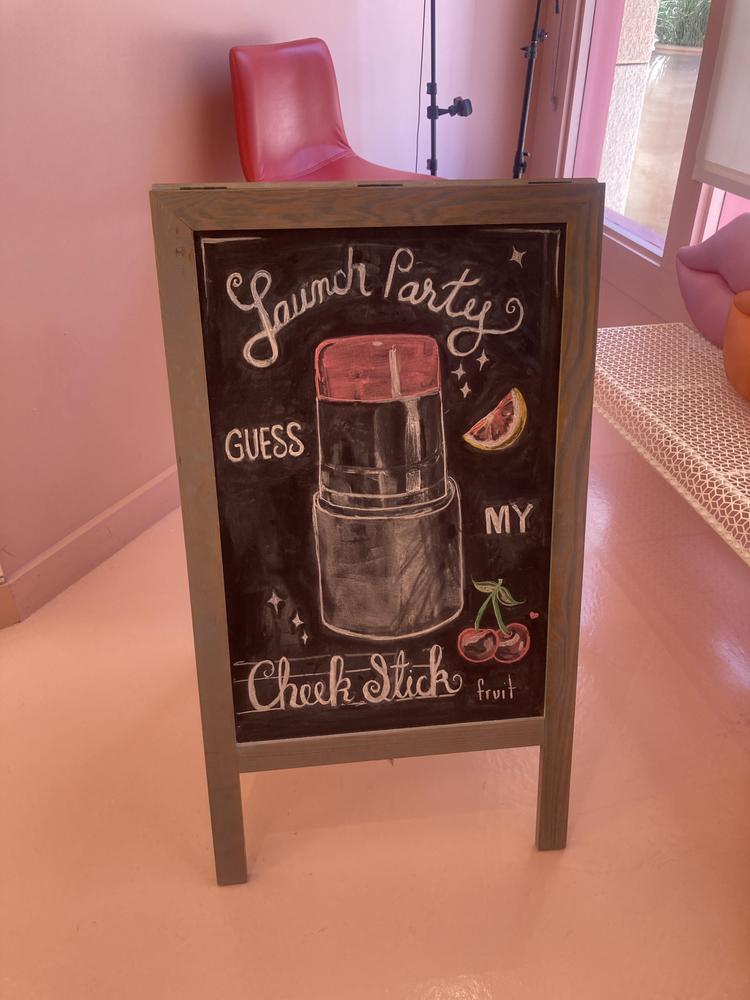 Launch Party
GUESS
MY
Cheek Stick
fruit